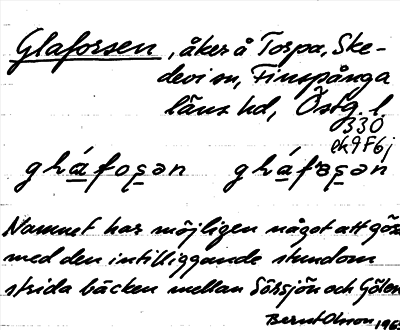 Glaforsen, åker å Torpa, Ske-
devi sn, Finspånga
läns hd, Östg. l.
330
ek 9F6j
Namnet har möjligen något att göra
med den intilliggande stundom
strida bäcken mellan Sörsjön och Gölen
Bernt Olsson 196